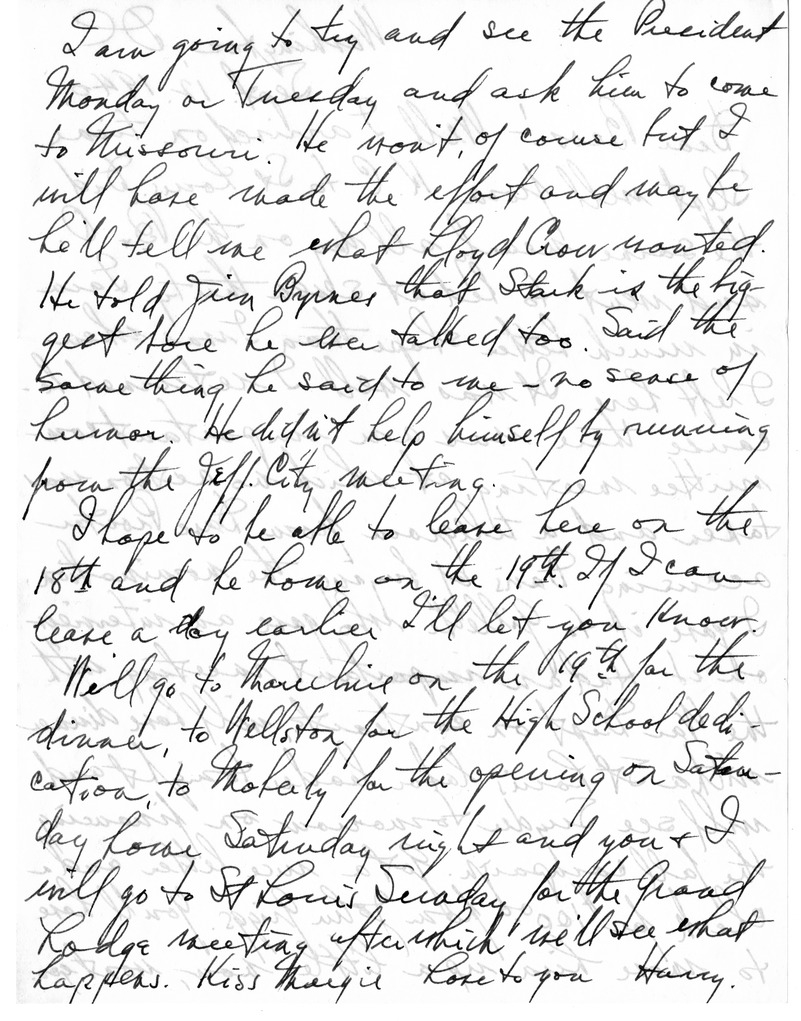 I am going to try and see the President
Monday or Tuesday and ask him to come
to Missouri. He won't, of course but I
will have made the effort and maybe
he'll tell me what Lloyd Crow wanted.
He told Jim Byrnes that Stark is the big-
gest bore he ever talked too. Said the
same thing he said to me - no sense of
humor. He didn't help himself by running
from the Jeff. City meeting.
I hope to be able to leave here on the
18th and be home on the 19th. If I can
leave a day earlier I'll let you know.
Will go to Marceline on the 19th for the
dinner, to Wellston for the High School dedi-
cation, to Moberly for the opening on Satur-
day home Saturday night and you & I
will go to St Louis Sunday for the Grand
Lodge meeting after which we'll see what
happens. Kiss Margie Love to you Harry.